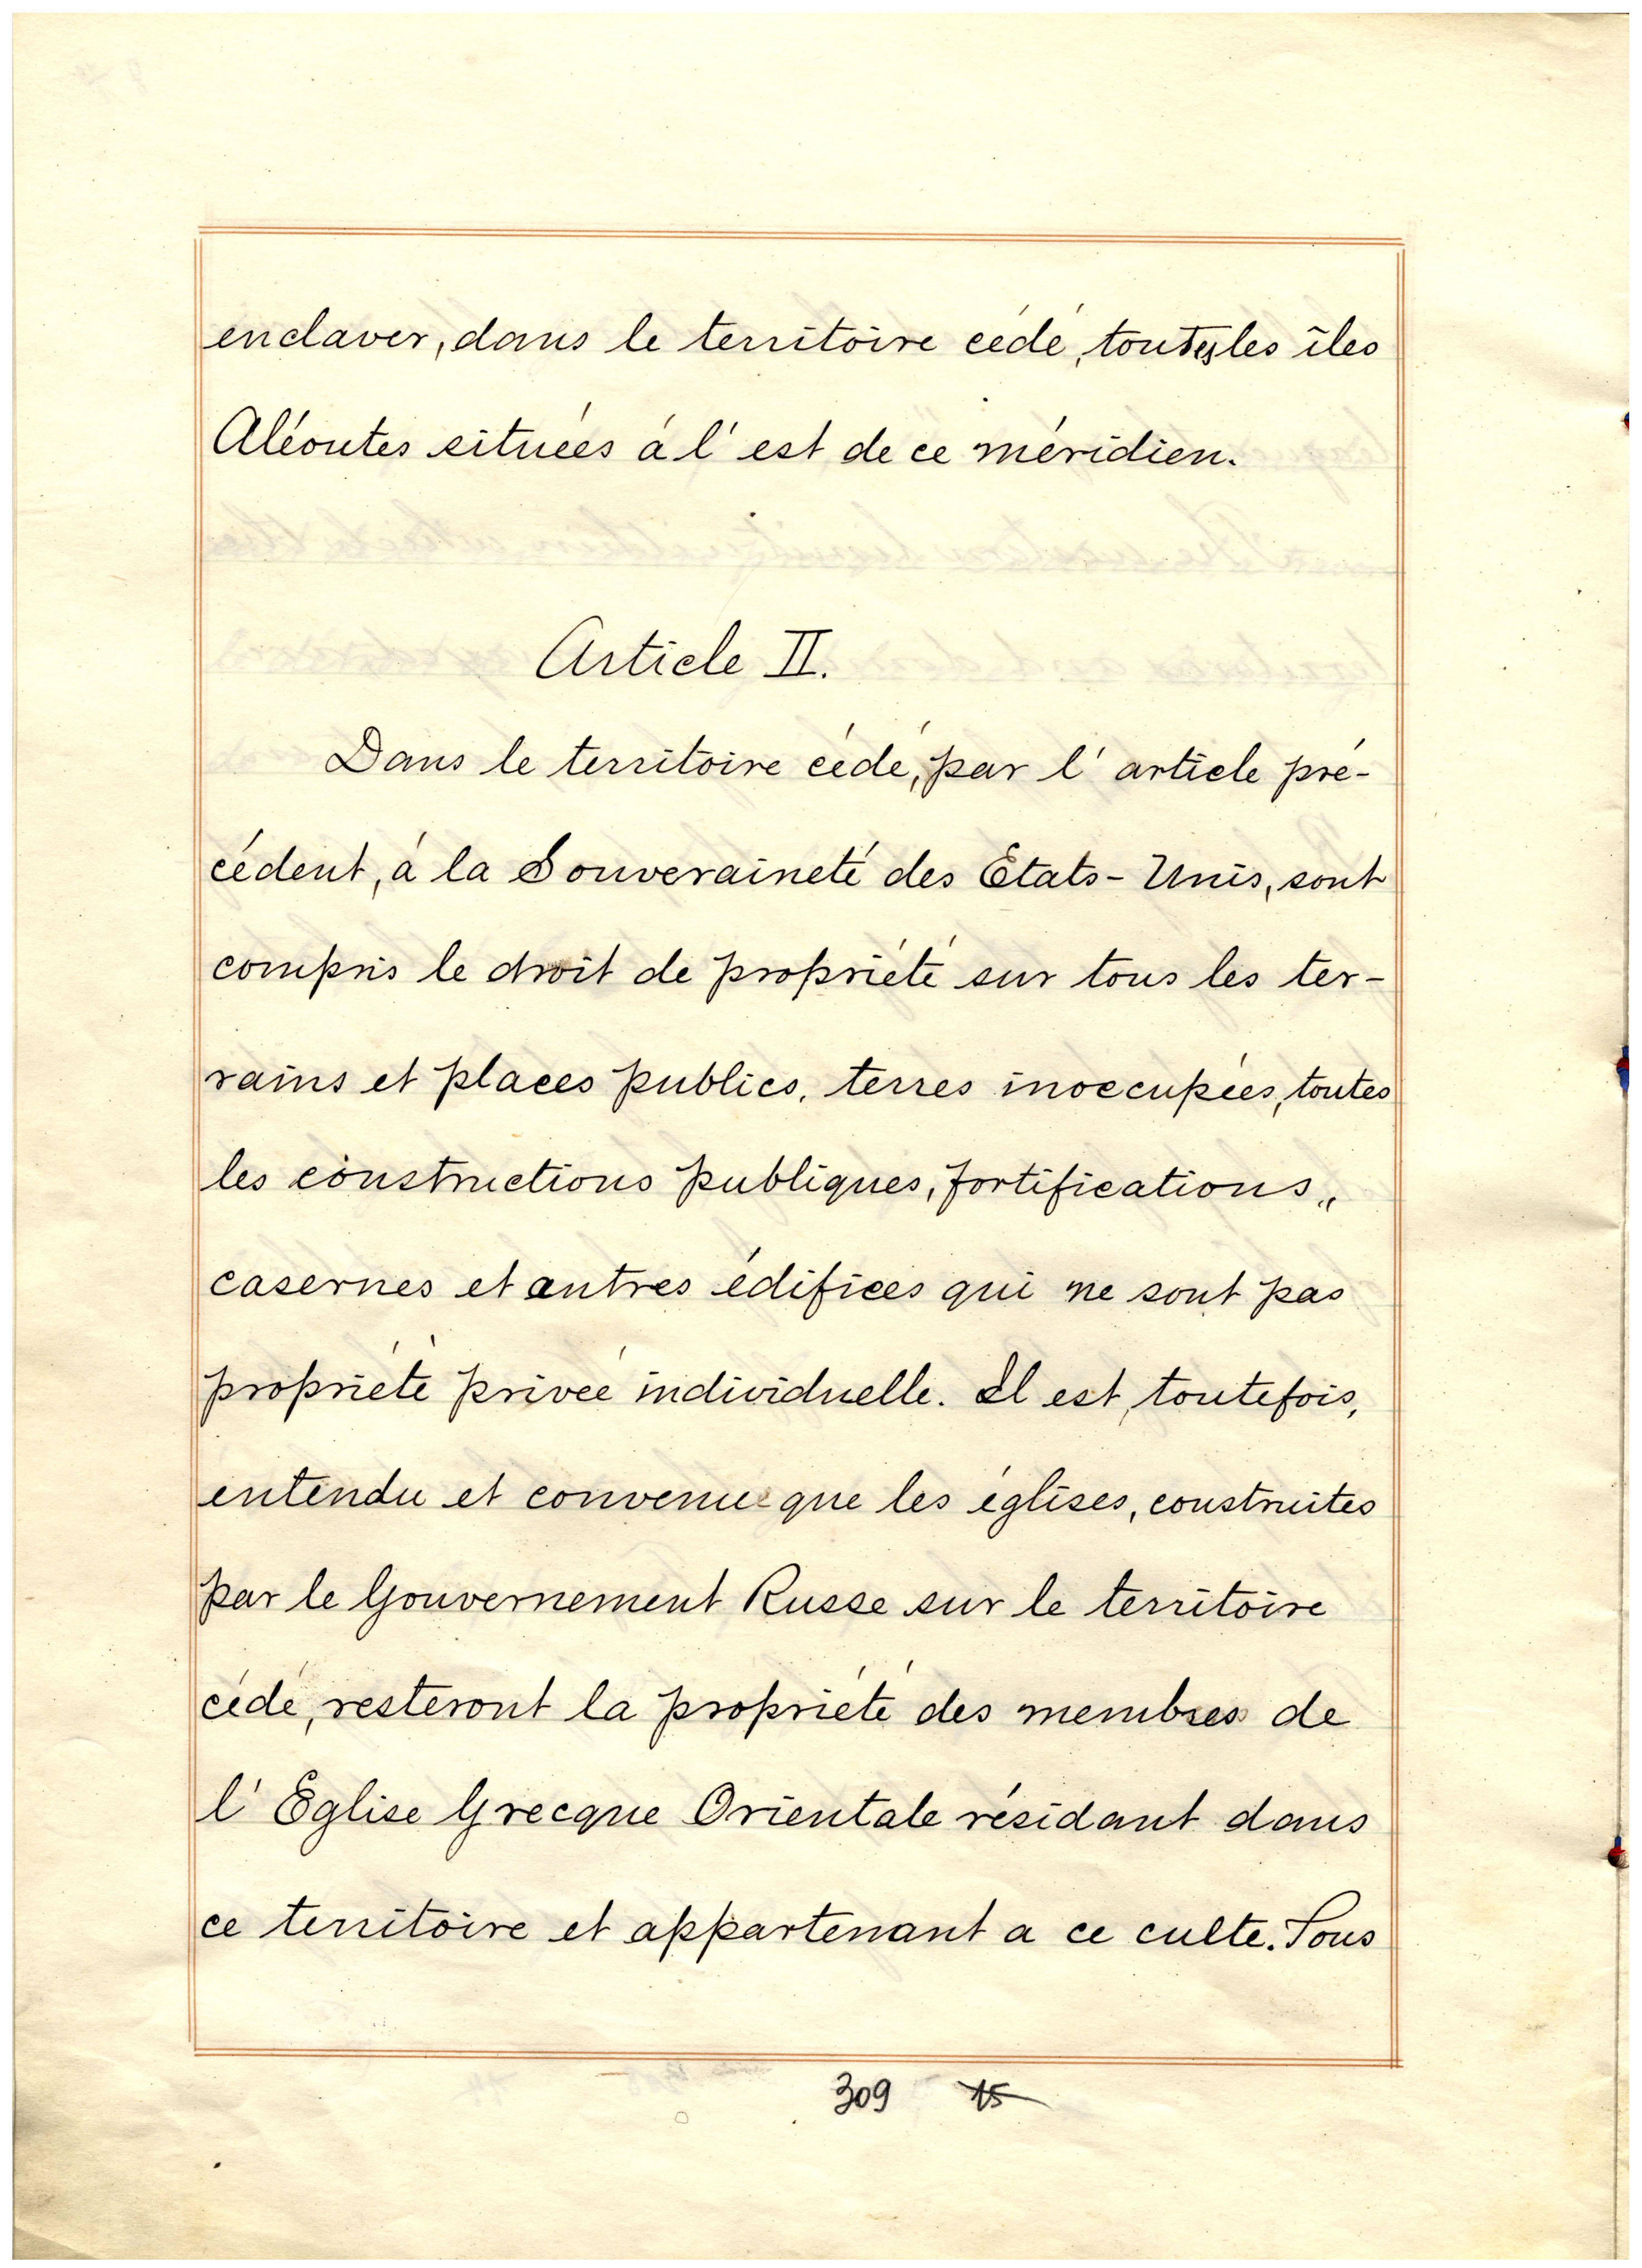 enclaver, dans le territoire cédé, toutes les îles
Aléoutes situées à l' est de ce méridien.
Article II.
Dans le territoire cédé, par l' article pré-
cédent, à la Souveraineté des Etats-Unis, sont
compris le droit de propriété sur tous les ter-
rains et places publics, terres inoccupées, toutes
les constructions publiques, fortifications,
casernes et autres édifices qui ne sont pas
propriété privée individuelle. Il est, toutefois,
entendu et convenu que les églises, construites
par le Gouvernement Russe sur le territoire
cédé, resteront la propriété des membres de
l' Eglise Grecque Orientale résidant dans
ce territoire et appartenant a ce culte. Tous
309 15